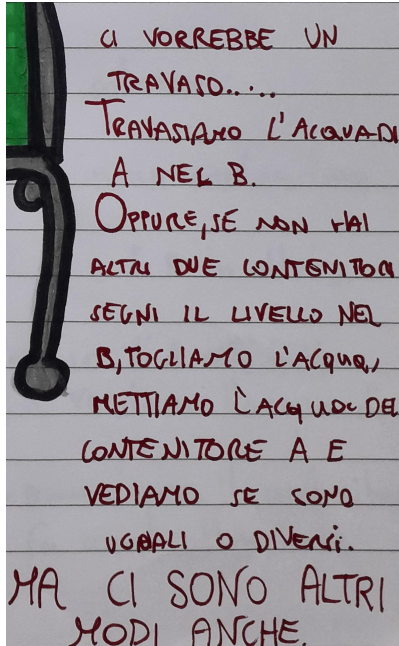 CI VORREBBE UN
TRAVASO.....
TRAVASIAMO L'ACQUA DI
A NEL B.
OPPURE, SE NON HAI
ALTRI DUE CONTENITORI
SEGNI IL LIVELLO NEL
B, TOGLIAMO L'ACQUA,
METTIAMO L'ACQUA DEL
CONTENITORE A E
VEDIAMO SE SONO
UGUALI O DIVERSI.
MA CI SONO ALTRI
MODI ANCHE.